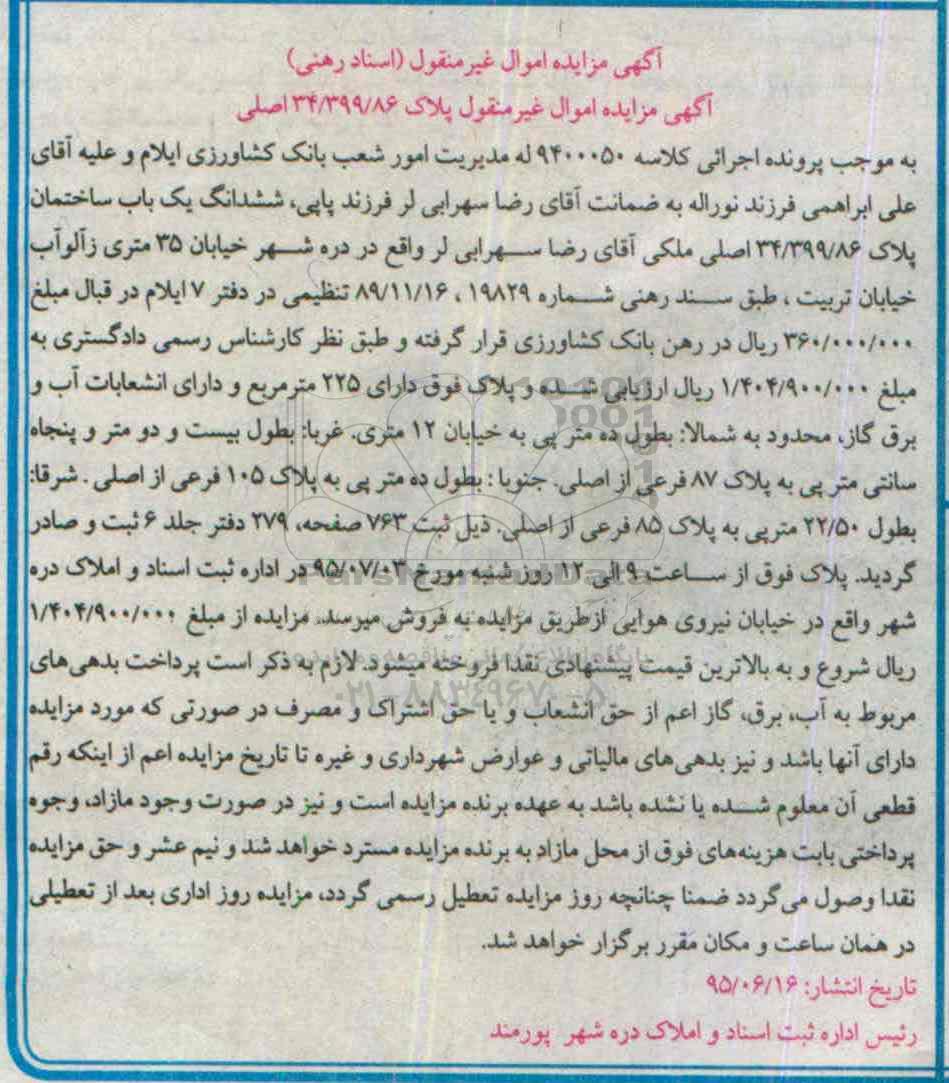 آگهی مزایده اموال غیرمنقول (اسناد رهنی)
آگهی مزایده اموال غیرمنقول پلاک ۳۴/۳۹۹/۸۶ اصلی
به موجب پرونده اجرائی کلاسه ۹۴۰۰۰۵۰ له مدیریت امور شعب بانک کشاورزی ایلام و علیه آقای
علی ابراهمی فرزند نوراله به ضمانت آقای رضا سهرابی لر فرزند پاپی، ششدانگ یک باب ساختمان
پلاک ۳۴/۳۹۹/۸۶ اصلی ملکی آقای رضا سهرابی لر واقع در دره شهر خیابان ۳۵ متری زآلوآب
خیابان تربیت ، طبق سند رهنی شماره ۱۹۸۲۹ ، ۸۹/۱۱/۱۶ تنظیمی در دفتر ۷ ایلام در قبال مبلغ
۳۶۰/۰۰۰/۰۰۰ ریال در رهن بانک کشاورزی قرار گرفته و طبق نظر کارشناس رسمی دادگستری به
مبلغ ۱/۴۰۴/۹۰۰/۰۰۰ ریال ارزیابی شده و پلاک فوق دارای ۲۲۵ مترمربع و دارای انشعابات آب و
برق گاز، محدود به شمالا: بطول ده متر پی به خیابان ۱۲ متری. غربا: بطول بیست و دو متر و پنجاه
سانتی متر پی به پلاک ۸۷ فرعی از اصلی. جنوبا : بطول ده متر پی به پلاک ۱۰۵ فرعی از اصلی . شرقا:
بطول ۲۲/۵۰ مترپی به پلاک ۸۵ فرعی از اصلی. ذیل ثبت ۷۶۳ صفحه، ۲۷۹ دفتر جلد ۶ ثبت و صادر
گردید. پلاک فوق از ساعت ۹ الی ۱۲ روز شنبه مورخ ۹۵/۰۷/۰۳ در اداره ثبت اسناد و املاک دره
شهر واقع در خیابان نیروی هوایی ازطریق مزایده به فروش میرسد. مزایده از مبلغ ۱/۴۰۴/۹۰۰/۰۰۰
ریال شروع و به بالاترین قیمت پیشنهادی نقدا فروخته میشود. لازم به ذکر است پرداخت بدهی های
مربوط به آب، برق، گاز اعم از حق انشعاب و یا حق اشتراک و مصرف در صورتی که مورد مزایده
دارای آنها باشد و نیز بدهی های مالیاتی و عوارض شهرداری و غیره تا تاریخ مزایده اعم از اینکه رقم
قطعی آن معلوم شده یا نشده باشد به عهده برنده مزایده است و نیز در صورت وجود مازاد، وجوه
پرداختی بابت هزینه‌های فوق از محل مازاد به برنده مزایده مسترد خواهد شد و نیم عشر و حق مزایده
نقدا وصول می گردد ضمنا چنانچه روز مزایده تعطیل رسمی گردد، مزایده روز اداری بعد از تعطیلی
در همان ساعت و مکان مقرر برگزار خواهد شد.
تاریخ انتشار: ۹۵/۰۶/۱۶
رئیس اداره ثبت اسناد و املاک دره شهر پورمند